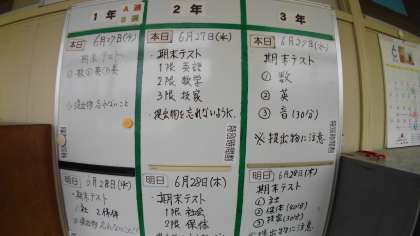 1年 A週 B週
本日 6月27日(水)
期末テスト
①数②英③美
提出物忘れないこと
明日 6月28日(木)
・期末テスト
2年
本日 6月27日(水)
・期末テスト
1限 英語
2限 数学
3限 技家
・提出物を忘れないように。
明日 6月28日(木)
・期末テスト
1限 社会
2限 保体
3年
本日 6月27日(水)
期末テスト
① 数
② 英
③ 音(30分)
※提出物に注意
明日 6月28日(木)
期末テスト
① 社
② 保体(40分)
③ 技家(30分)
※提出物に注意